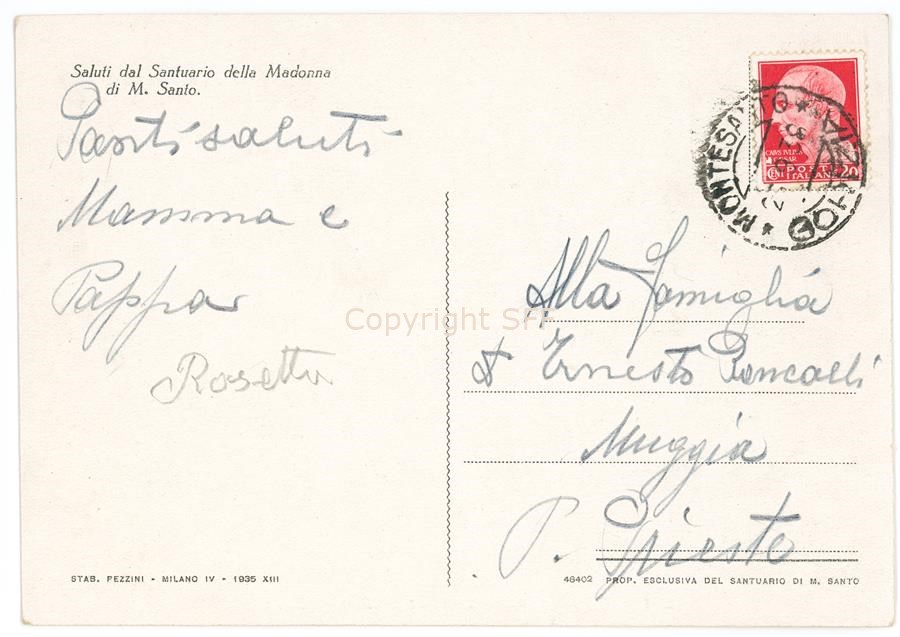 Saluti dal Santuario della Madonna
di M. Santo.
Santi saluti
Mamma e
Pappa
Rosetta
Alla Famiglia
Ernesto
Muggia
P. Trieste
STAB. PEZZINI - MILANO IV - 1935 XIII
46402 PROP. ESCLUSIVA DEL SANTUARIO DI M. SANTO
CAIVS IVLIVS
CAESAR
POSTE
ITALIANE
20
MONTESANTO
GORIZIA
Copyright SFF